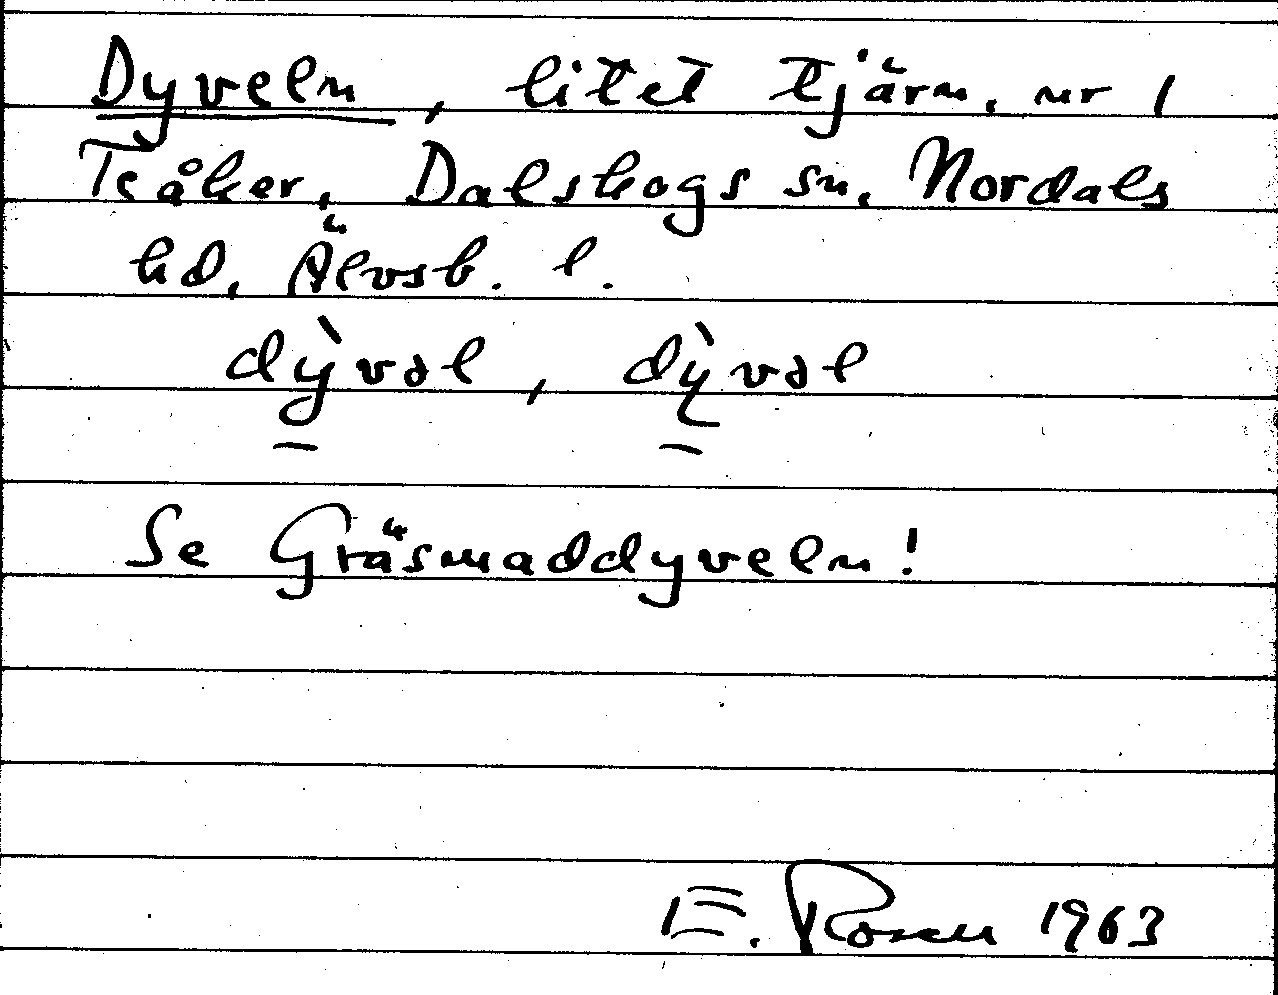 Dyveln, litet tjärn, nr 1
Teåker, Dalskogs sn, Nordals
hd, Älvsb. l.
dỳvəl, dỳvəl
Se Gräsmaddyveln!
E. Rosen 1963